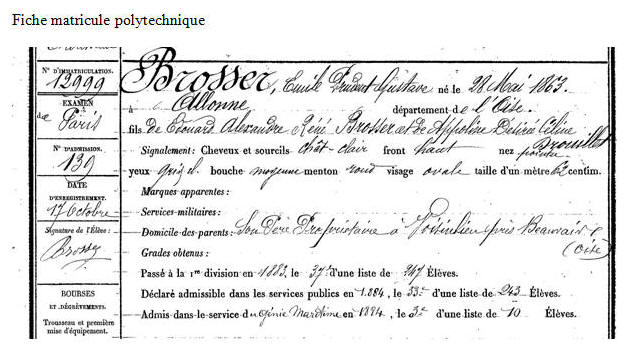 Fiche matricule polytechnique
N° D'IMMATRICULATION.
12999
EXAMEN
de Paris
N° D'ADMISSION.
139
DATE
D'ENREGISTREMENT.
17 Octobre
Signature de l'Élève:
Brosser
BOURSES
ET DÉGRÈVEMENTS.
Trousseau et première
mise d'équipement.
Brosser, Emile Prudent Gustave né le 28 Mai 1863.
à Allonne département de l'Oise.
fils de Edouard Alexandre René Brosser et de Appoline Désiré Céline
Brouillet
Signalement: Cheveux et sourcils chât-clair front haut nez pointu
yeux gris bl. bouche moyenne menton rond visage ovale taille d'un mètre 62 centim.
Marques apparentes:
Services militaires:
Domicile des parents: Son Père Propriétaire à Voisinlieu près Beauvais
(Oise)
Grades obtenus:
Passé à la 1re division en 1883, le 37e d'une liste de 247 Élèves.
Déclaré admissible dans les services publics en 1884, le 33e d'une liste de 243 Élèves.
Admis dans le service du génie Maritime en 1884, le 3e d'une liste de 10 Élèves.